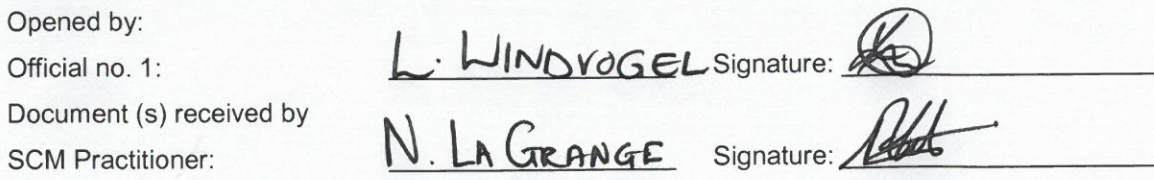 Opened by:
Official no. 1: L. WINDVOGEL Signature:
Document (s) received by
SCM Practitioner: N. LA GRANGE Signature: